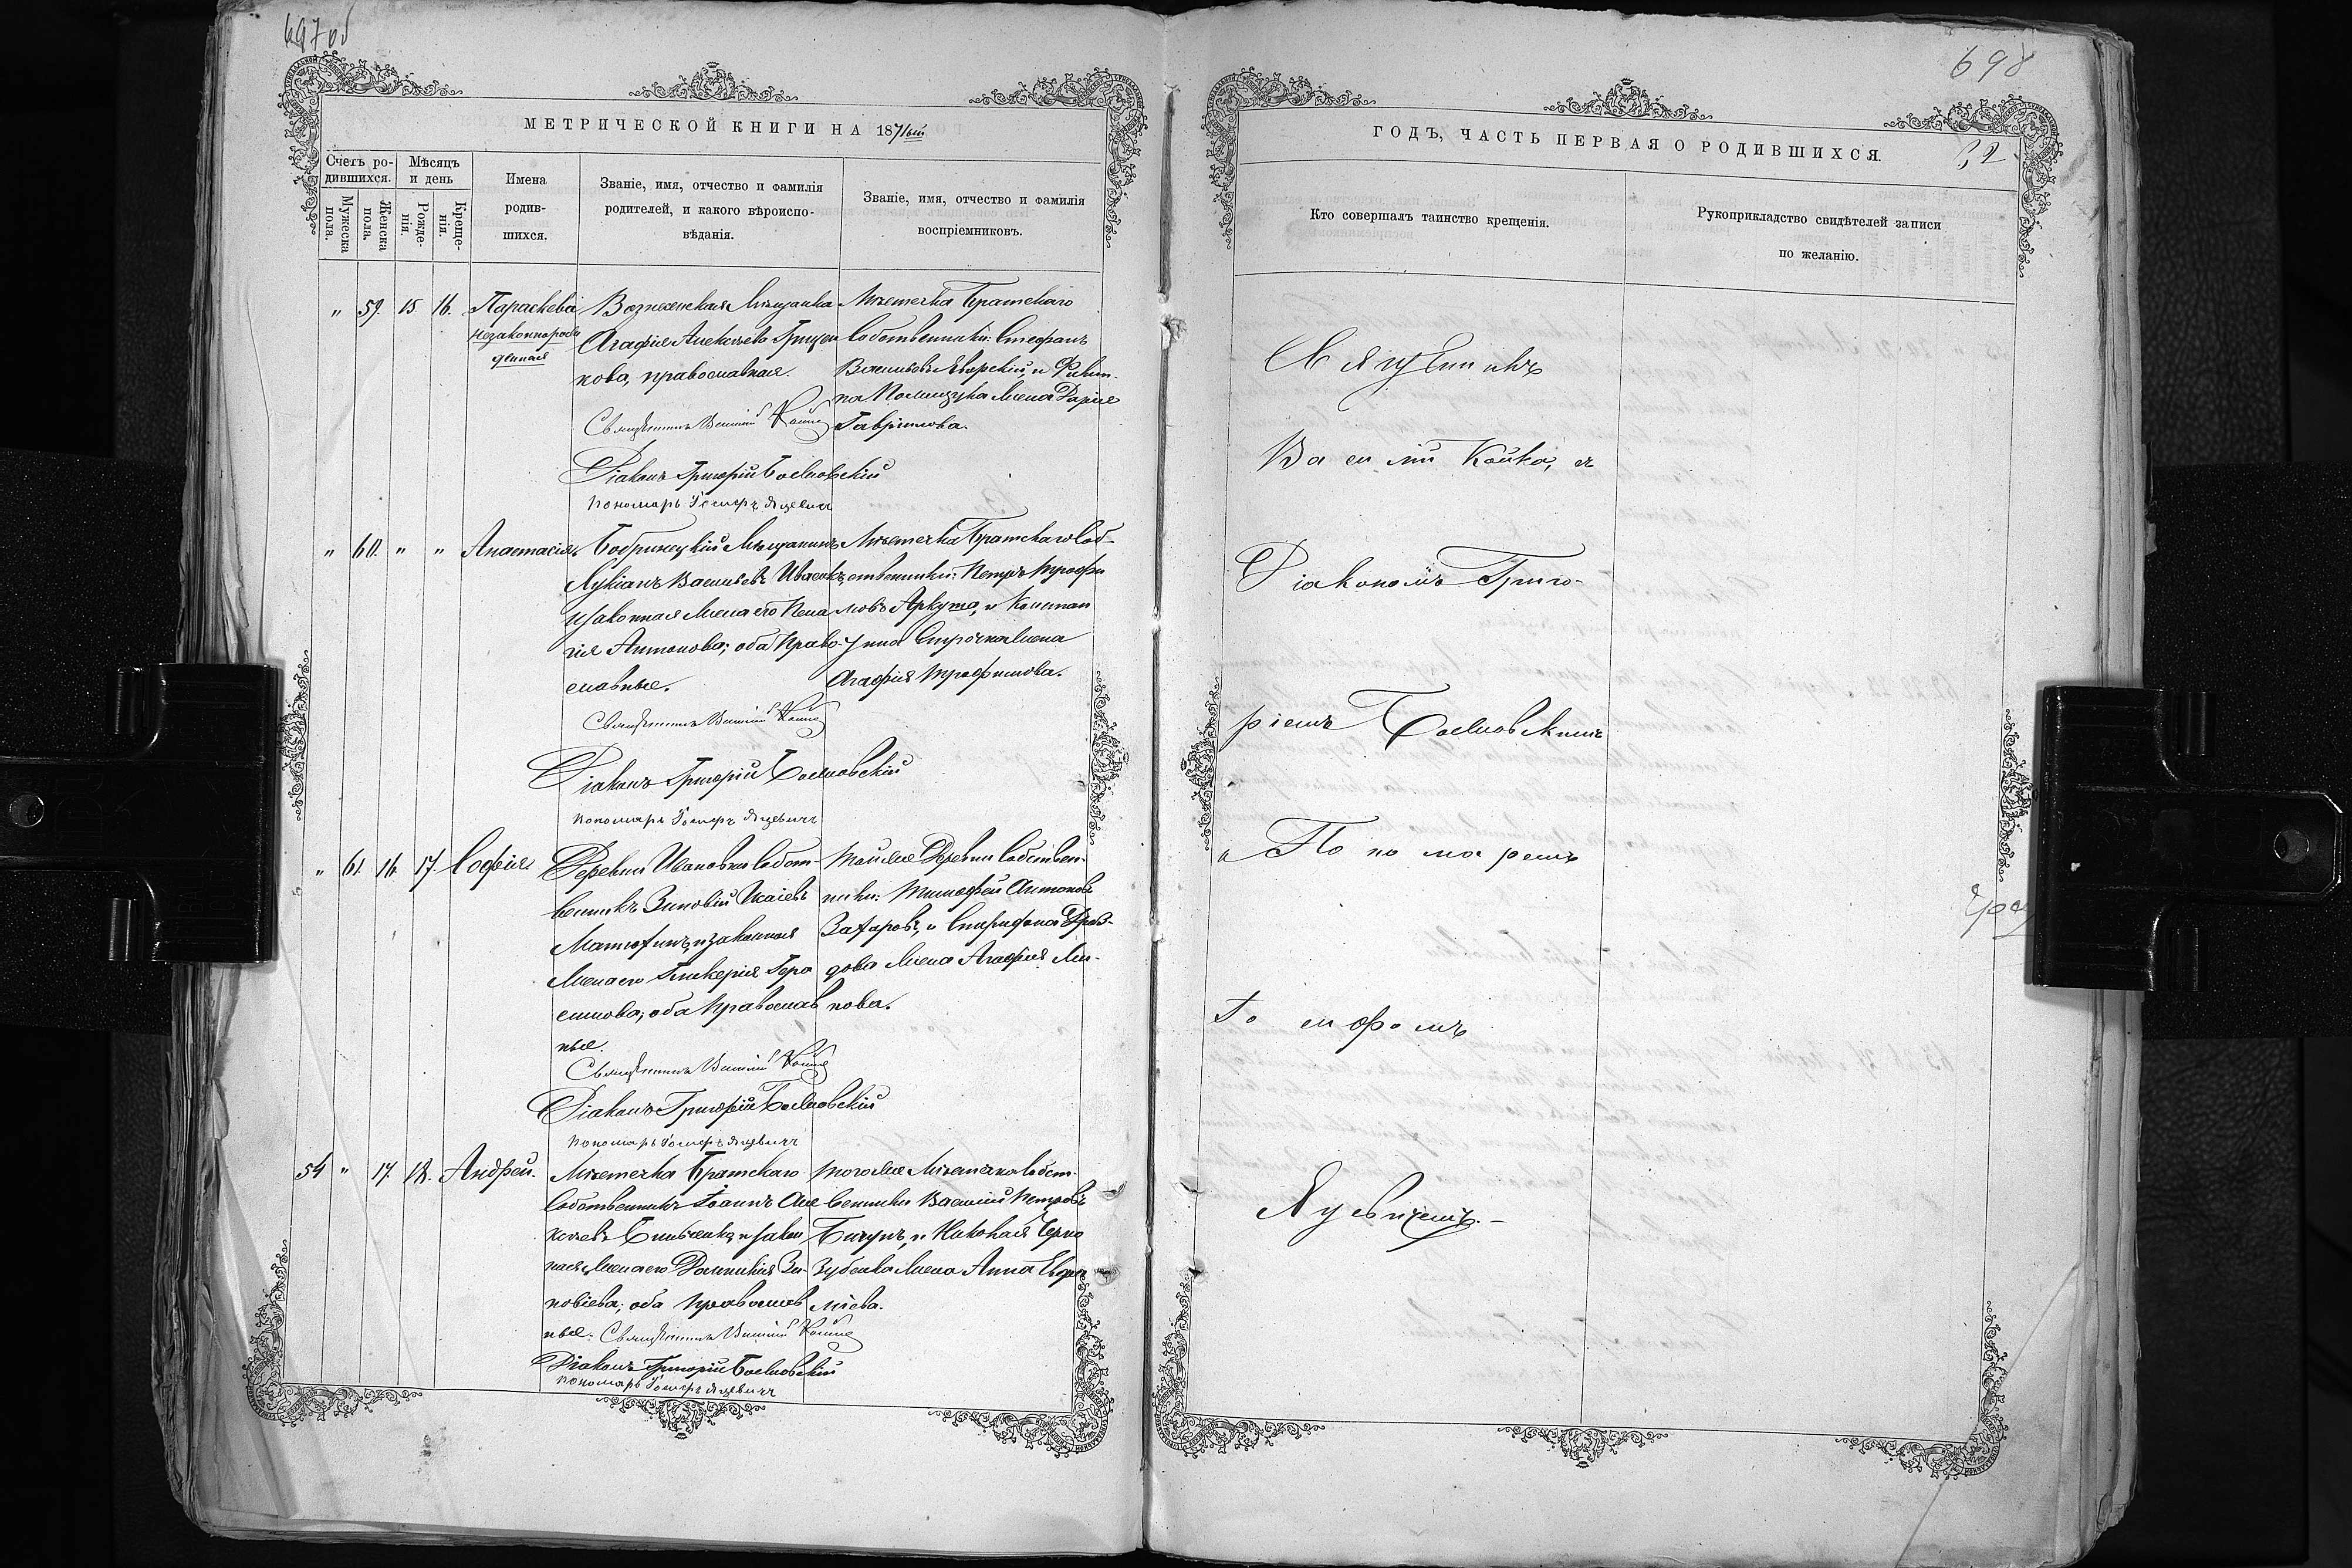 697об
МЕТРИЧЕСКОЙ КНИГИ НА 1871ый
Счетъ ро-
дившихся.
Мужеска
пола.
Женска
пола.
Мѣсяцъ
и день
Рожде-
нія.
Креще-
нія.
Имена
родив-
шихся.
Званіе, имя, отчество и фамилія
родителей, и какого вѣроиспо-
вѣданія.
Званіе, имя, отчество и фамилія
воспріемниковъ.
" 59. 15 16. Параскева
незаконнорож
денная
Вознесенская Мѣщанка
Агафія Алексѣева Грицен
кова, православная.
Священникъ Василій Койко
Діаконъ Григорій
Пономарь Іосифъ Яцевичъ
Мѣстечка Братскаго
Собственники: Стефанъ
Васильевъ и Филип-
па жена Дарія
Гаврилова.
" 60. " " Анастасія
Бобринецкій Мѣщанинъ
Лукіанъ Васильевъ
и законная Жена его Пела
гія Антонова; оба Право
славные.
Священникъ Василій Койко
Діаконъ Григорій
Пономарь Іосифъ Яцевичъ
Мѣстечка Братскаго Соб-
ственники: Петръ Трофи
мовъ Аркуша, и Констан
тина жена
Агафія Трофимова.
" 61. 16. 17. Софія
Деревни Ивановки Собст-
венникъ Зиновій Исаіевъ
и законная
Жена его Гликерія Гера
симова; оба Православ
ные.
Священникъ Василій Койко
Діаконъ Григорій
Пономарь Іосифъ Яцевичъ
Той же Деревни Собствен-
ники: Тимофей Антоновъ
Захаровъ, и Спиридона Дроз-
дова Жена Агафія
нова.
54 " 17. 18. Андрей.
Мѣстечка Братскаго
Собственникъ Іоаннъ Але
ксѣевъ и закон
ная Жена его Домникія Зи-
новіева; оба Православ
ные. Священникъ Василій Койко
Діаконъ Григорій
Пономарь Іосифъ Яцевичъ
Того же Мѣстечка Собст-
венники Василій Петровъ
Бигунъ, и Николая Черно
Зубенка Жена Анна Евфи
міева.
698
ГОДЪ, ЧАСТЬ ПЕРВАЯ О РОДИВШИХСЯ.
Кто совершалъ таинство крещенія.
Рукоприкладство свидѣтелей записи
по желанію.
Священникъ
Василій Койко, съ
Діакономъ Григо-
ріемъ
и Пономаремъ
Іосифомъ
Яцевичемъ.-